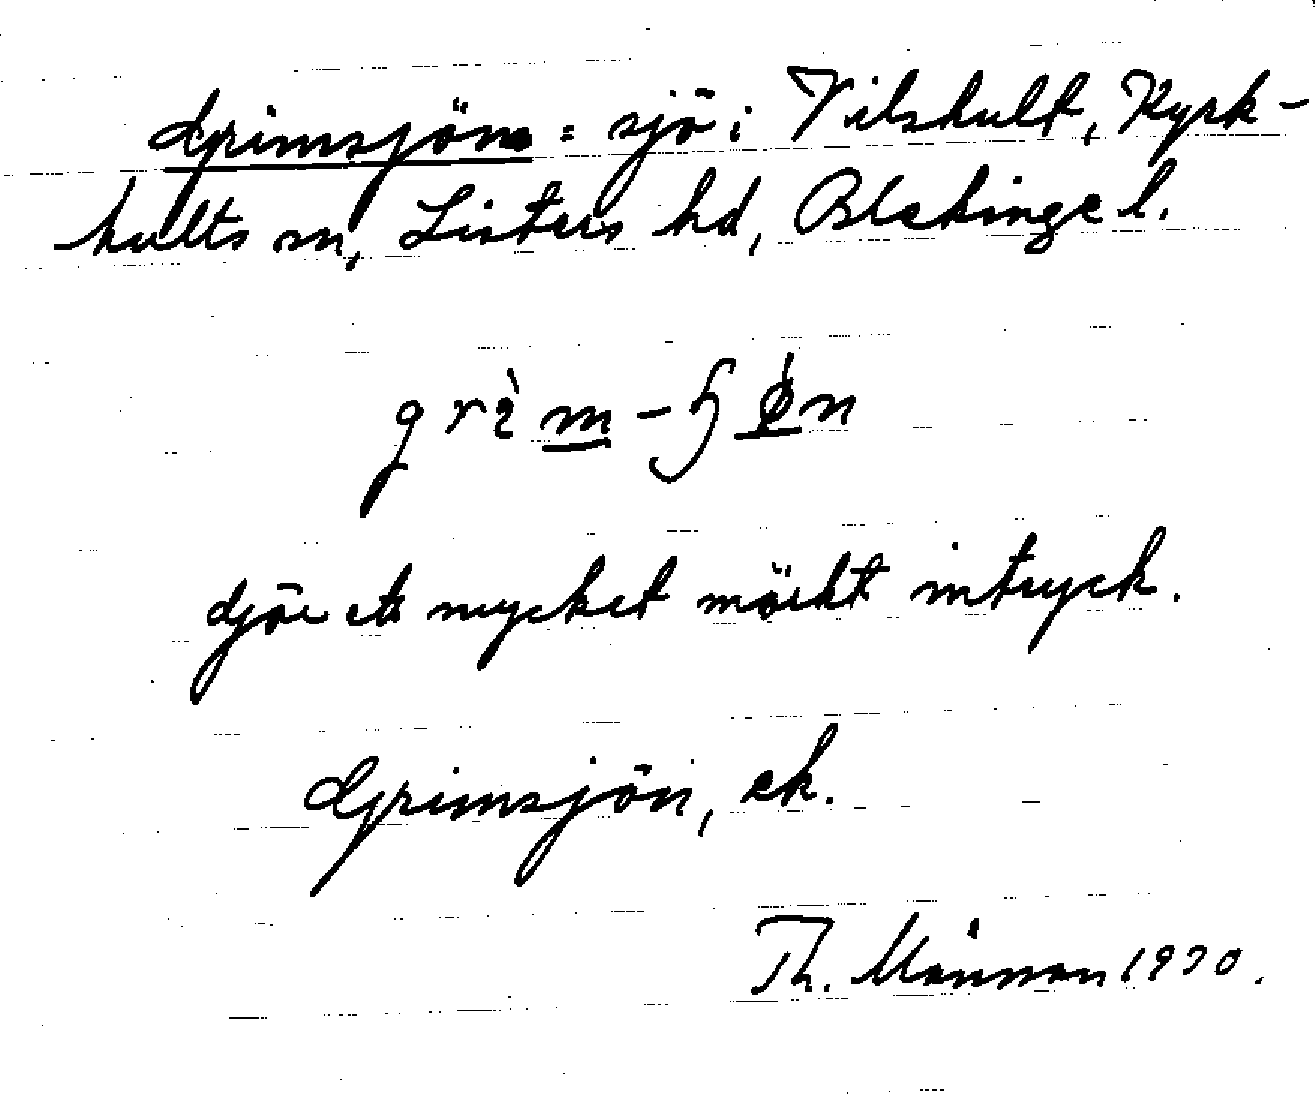 Grimsjön = sjö i Vilshult, Kyrk-
hults sn, Listers hd, Blekinge l.
Gör ett mycket mörkt intryck.
Grimsjön, ek.
Th. Månsson 1970.